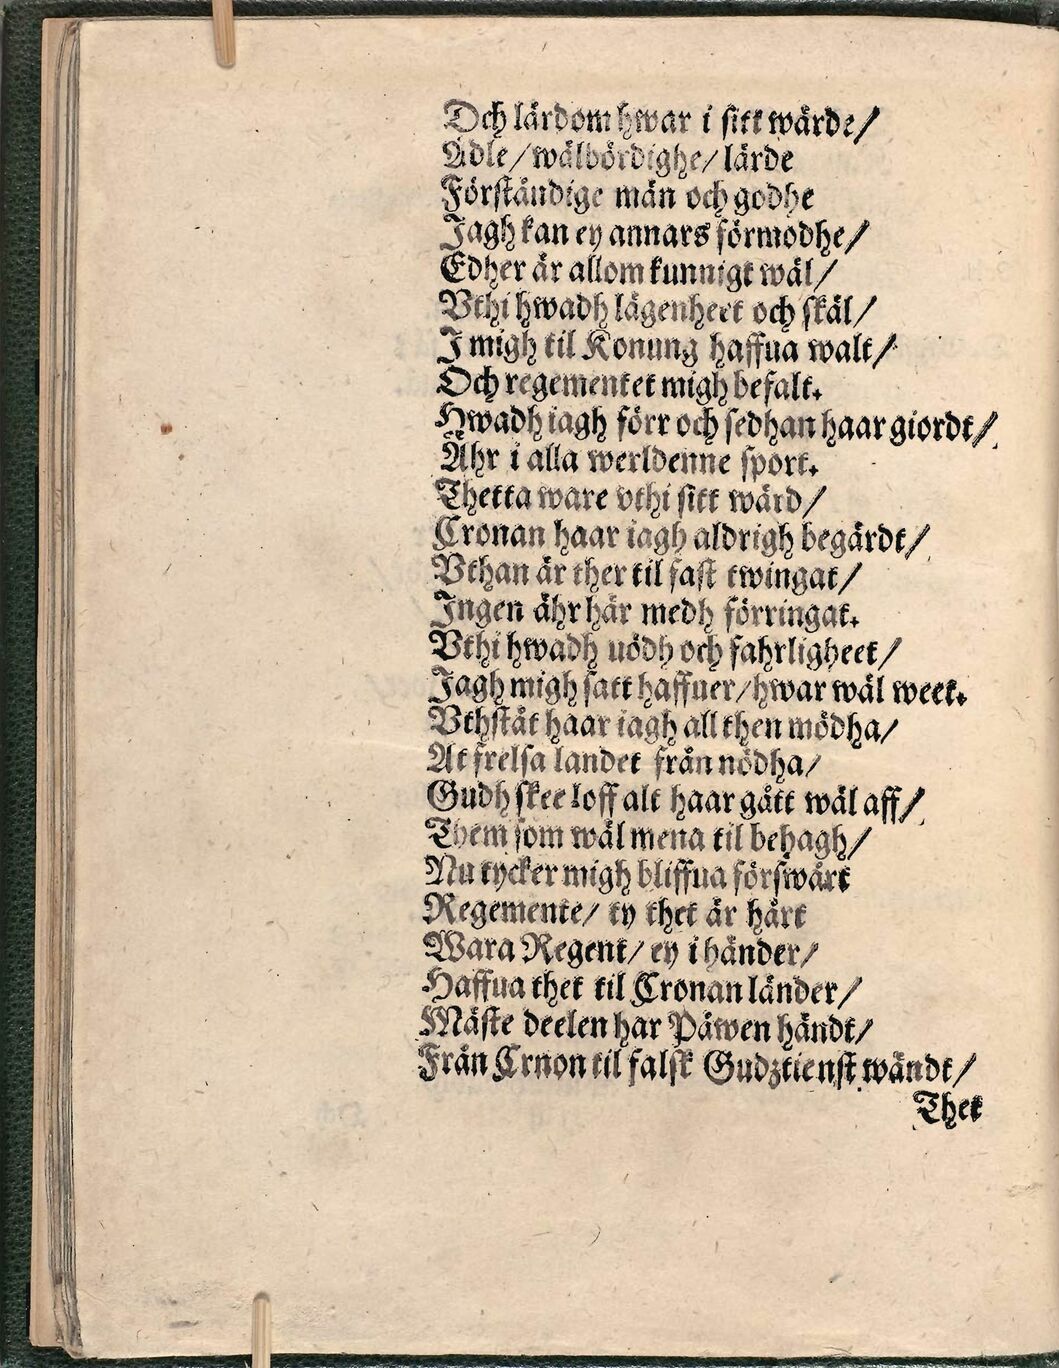 Och lärdom hwar i sitt wärde/
Ädle/wälbördighe/lärde
Förståndige män och godhe
Jagh kan ey annars förmodhe/
Edher är allom kunnigt wäl/
Vthi hwadh lägenheet och skäl/
J migh til Konung haffua walt/
Och regementet migh befalt.
Hwadh iagh förr och sedhan haar giordt/
Ähr i alla werldenne sport.
Thetta ware vthi sitt wärd/
Cronan haar iagh aldrigh begärdt/
Vthan är ther til fast twingat/
Jngen ähr här medh förringat.
Vthi hwadh nödh och fahrligheet/
Jagh migh satt haffuer/hwar wäl weet.
Vthstât haar iagh all then mödha/
At frelsa landet från nödha/
Gudh skee loff alt haar gått wäl aff/
Them som wäl mena til behagh/
Nu tycker migh bliffua förswårt
Regemente/ ty thet är hårt
Wara Regent/ ey i händer/
Haffua thet til Cronan länder/
Mäste deelen har Påwen händt/
Från Crnon til falsk Gudztienst wändt/
Thet